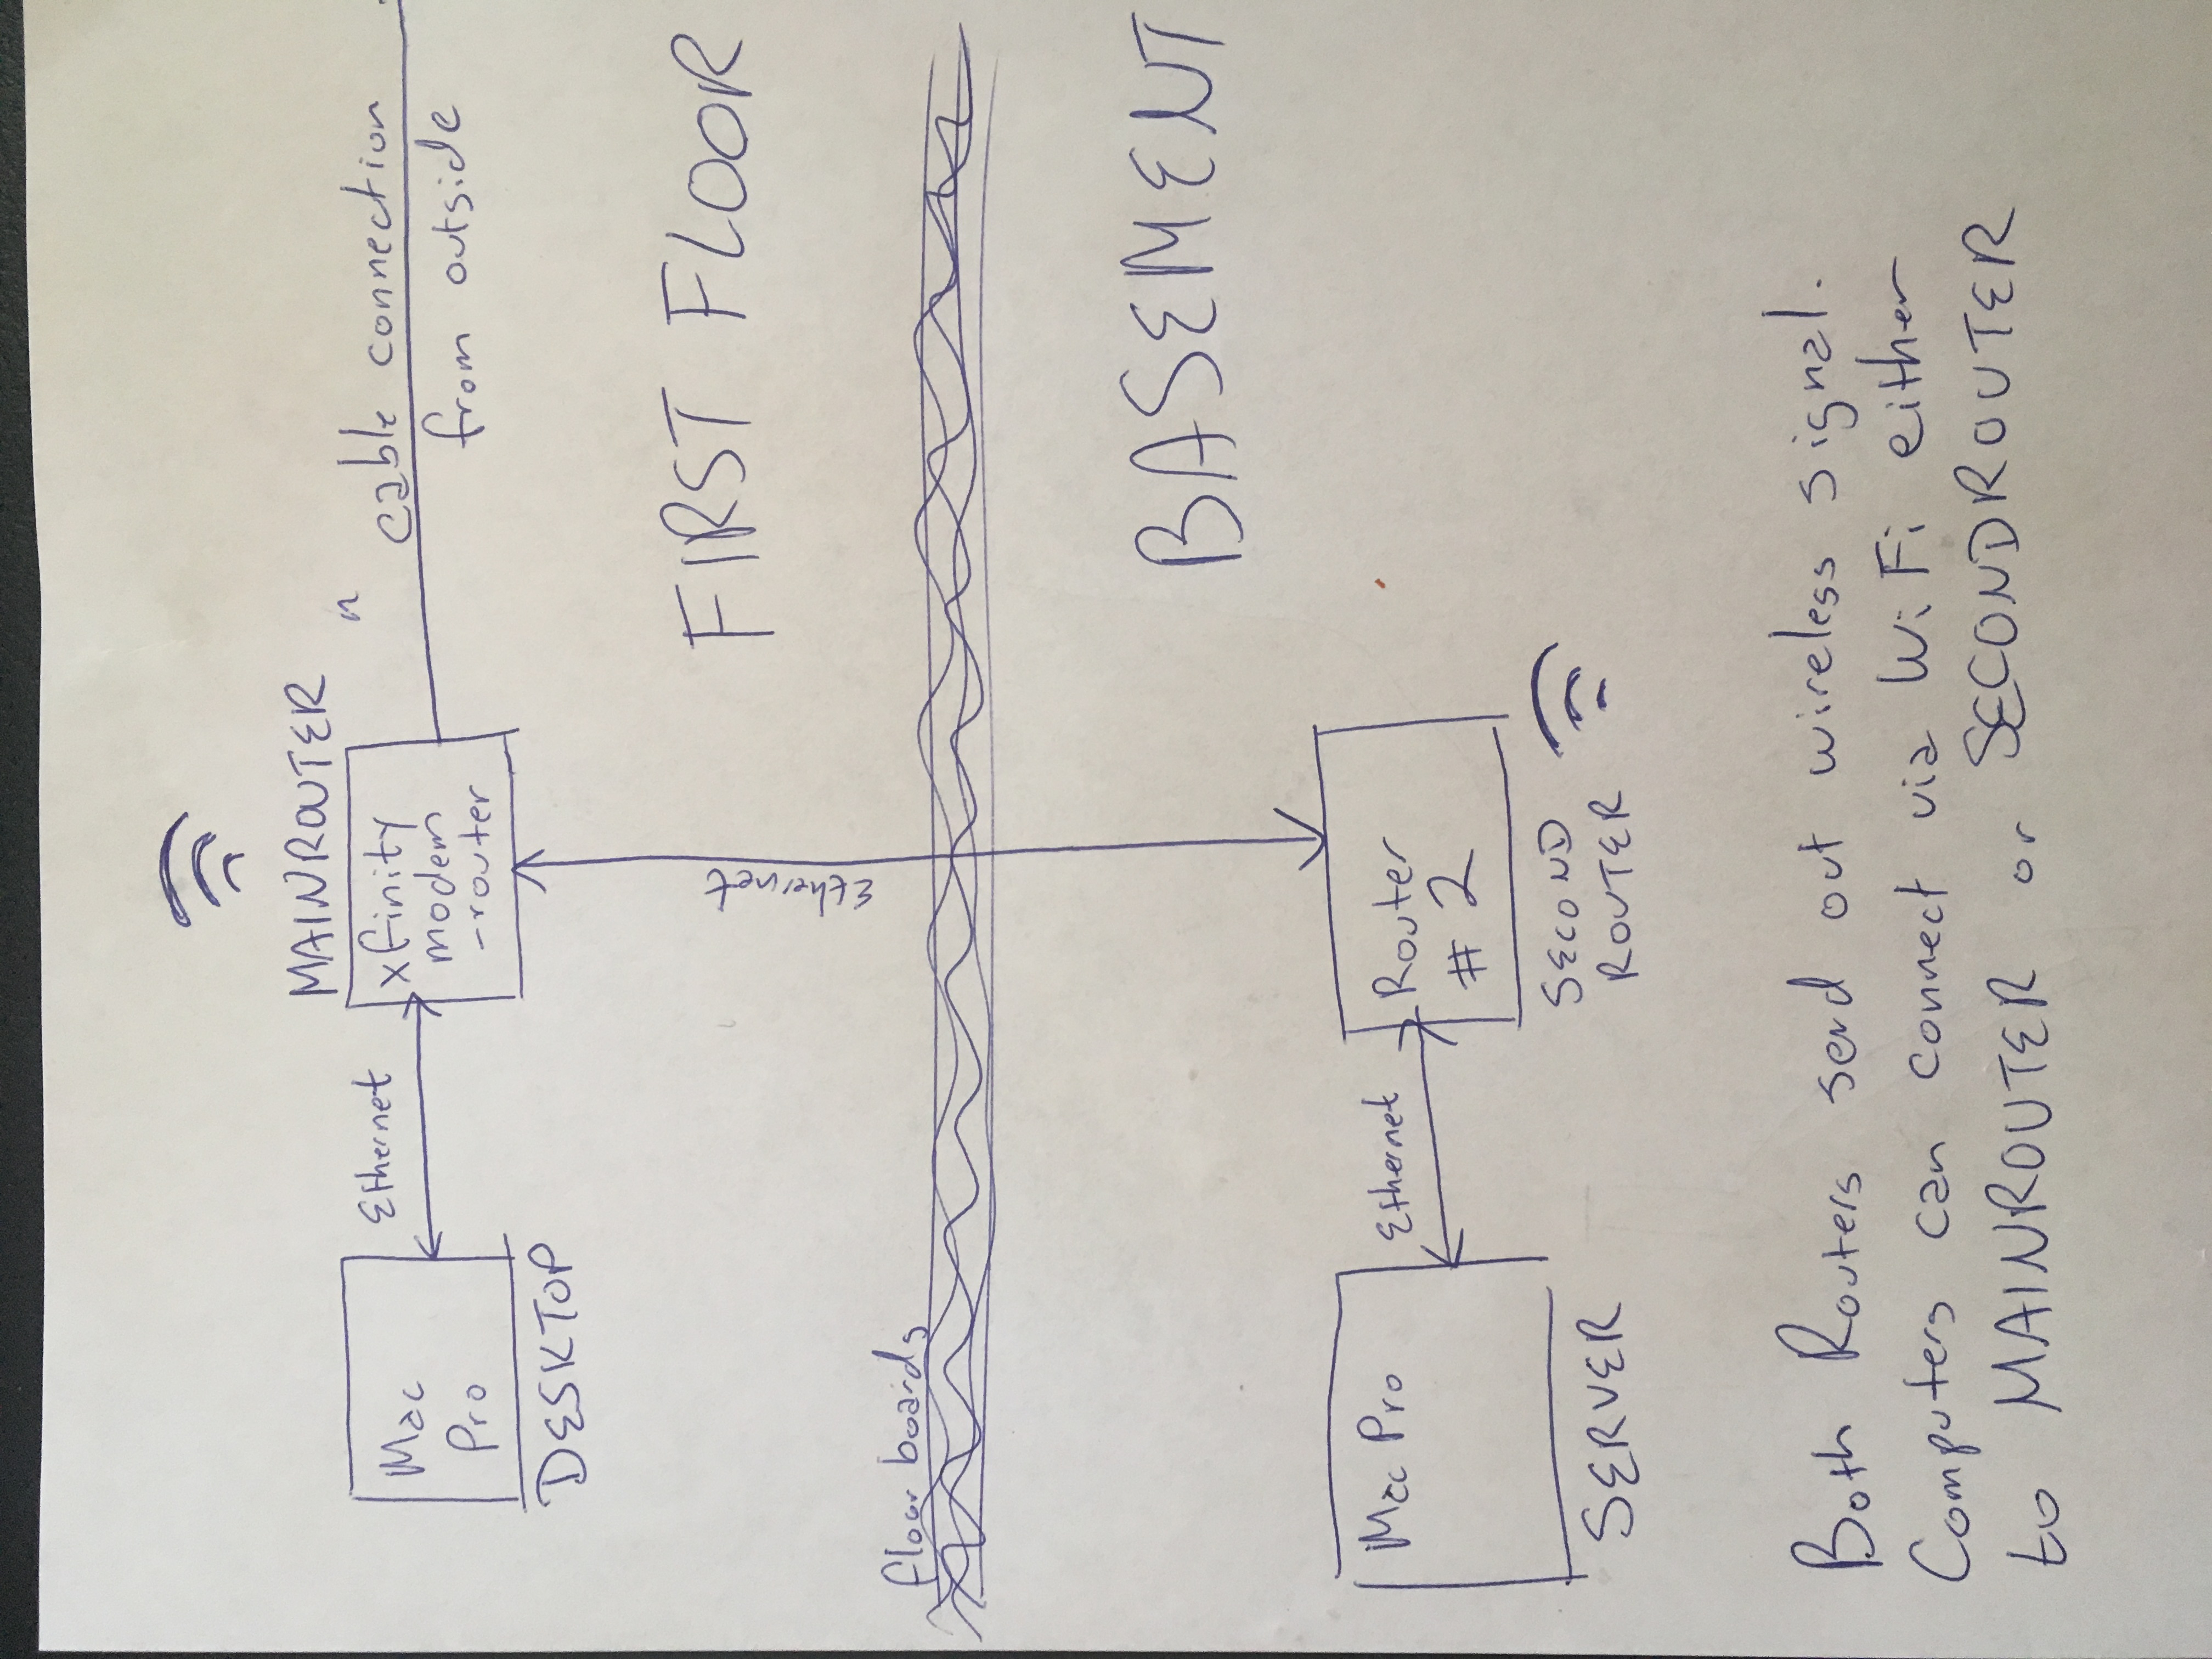 MAINROUTER
n
cable connection
from outside
xfinity
modem
-router
Ethernet
Mac
Pro
DESKTOP
FIRST FLOOR
Ethernet
floor boards
BASEMENT
Router
# 2
SECOND
ROUTER
Ethernet
Mac Pro
SERVER
Both Routers send out wireless signal.
Computers can connect via WiFi either
to MAINROUTER or SECONDROUTER